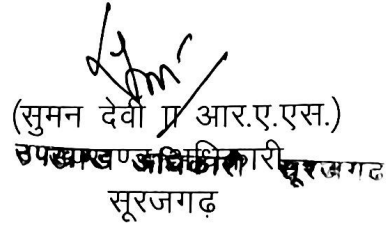 (सुमन देवी आर.ए.एस.)
उपखण्ड अधिकारी सूरजगढ
सूरजगढ़